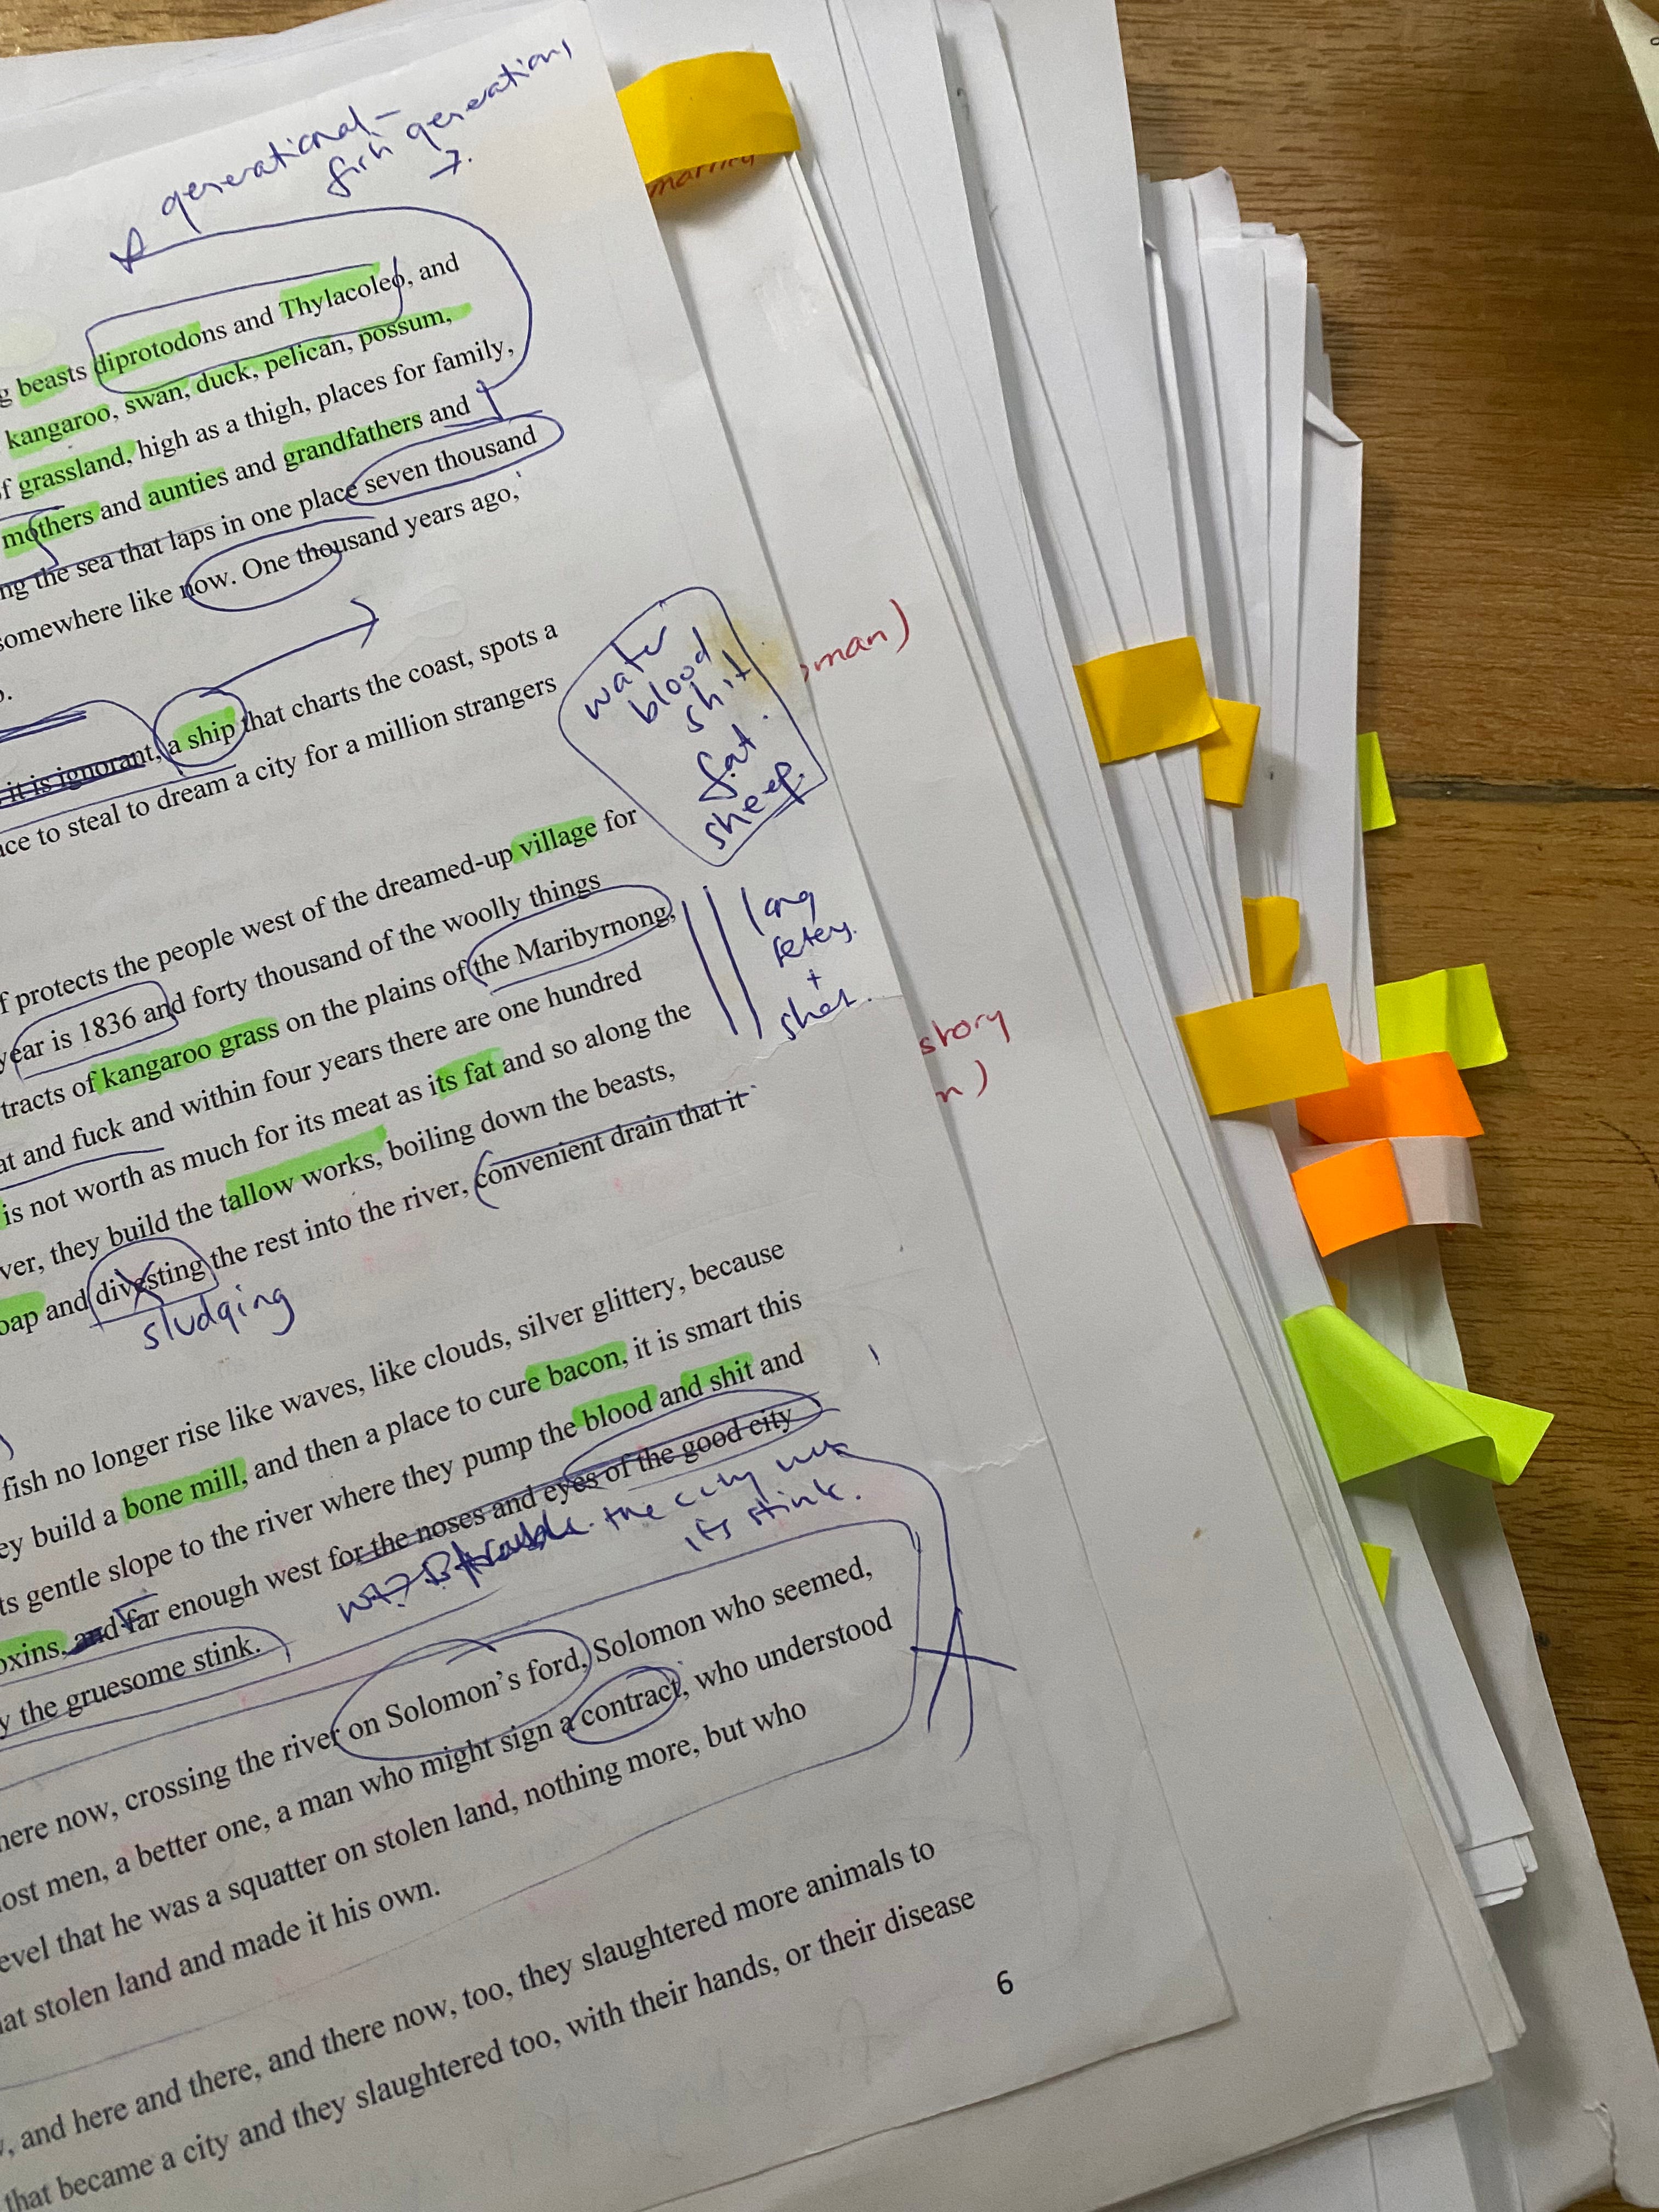 generational –
fish generations
marrity
beasts diprotodons and Thylacoleo, and
kangaroo, swan, duck, pelican, possum,
grassland, high as a thigh, places for family,
mothers and aunties and grandfathers and
the sea that laps in one place seven thousand
somewhere like now. One thousand years ago,
man)
it is ignorant, a ship that charts the coast, spots a
to steal to dream a city for a million strangers
water
blood
shit
fat
sheep.
protects the people west of the dreamed-up village for
year is 1836 and forty thousand of the woolly things
tracts of kangaroo grass on the plains of the Maribyrnong,
and fuck and within four years there are one hundred
is not worth as much for its meat as its fat and so along the
they build the tallow works, boiling down the beasts,
and divesting the rest into the river, convenient drain that it
sludging
long
+
story
n)
fish no longer rise like waves, like clouds, silver glittery, because
build a bone mill, and then a place to cure bacon, it is smart this
gentle slope to the river where they pump the blood and shit and
and far enough west for the noses and eyes of the good city
the city
its stink.
the gruesome stink.
here now, crossing the river on Solomon's ford, Solomon who seemed,
most men, a better one, a man who might sign a contract, who understood
level that he was a squatter on stolen land, nothing more, but who
that stolen land and made it his own.
and here and there, and there now, too, they slaughtered more animals to
that became a city and they slaughtered too, with their hands, or their disease
6